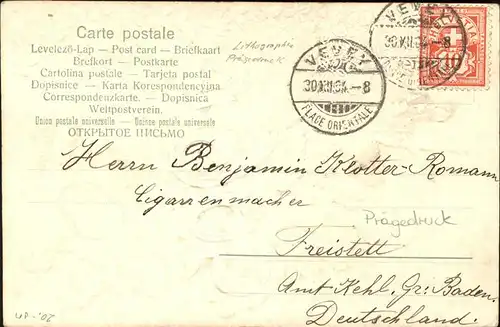 Carte postale
Levelező-Lap — Post card — Briefkaart
Brefkort — Postkarte
Cartolina postale — Tarjeta postal
Dopisnice — Karta Korespondencyjna
Correspondenzkarte. — Dopisnica
Weltpostverein.
Union postale universelle — Unione postale universale
ОТКРЫТОЕ ПИСЬМО
Lithographie
Prägedruck
VEVEY
30.XII.04.—8
PLACE ORIENTALE
VEVEY
30.XII.04.—8
HELVETIA
10
Herrn Benjamin Klotter-Romann
Cigarrenmacher
Prägedruck
Freistett
Amt Kehl, Gr: Baden
Deutschland.